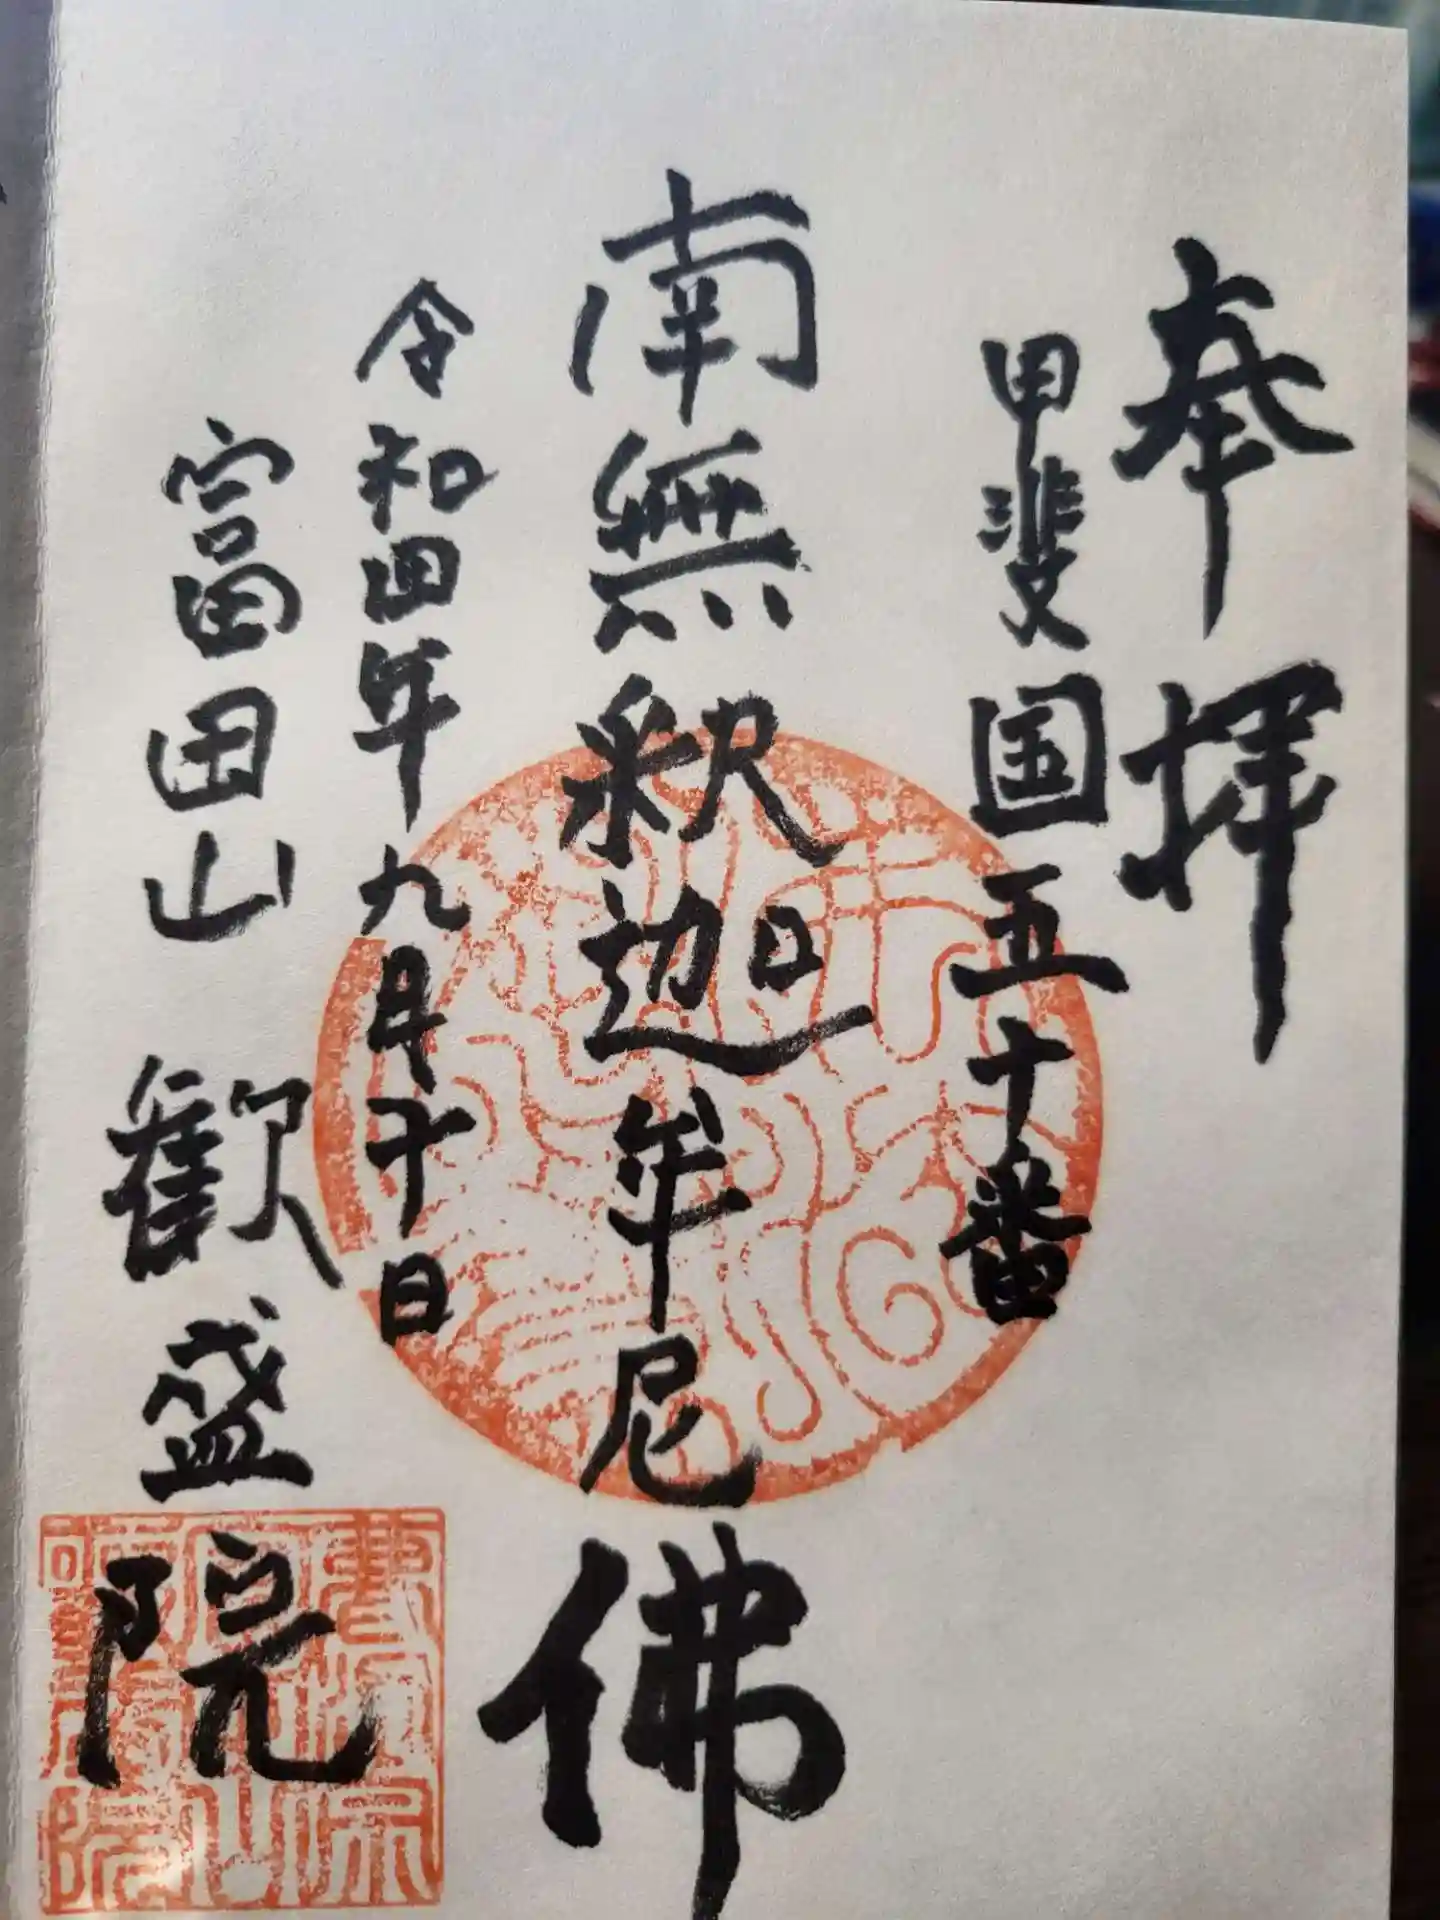 奉拝
甲斐国五十番
南無釈迦牟尼佛
令和四年九月十日
富田山 歡盛院